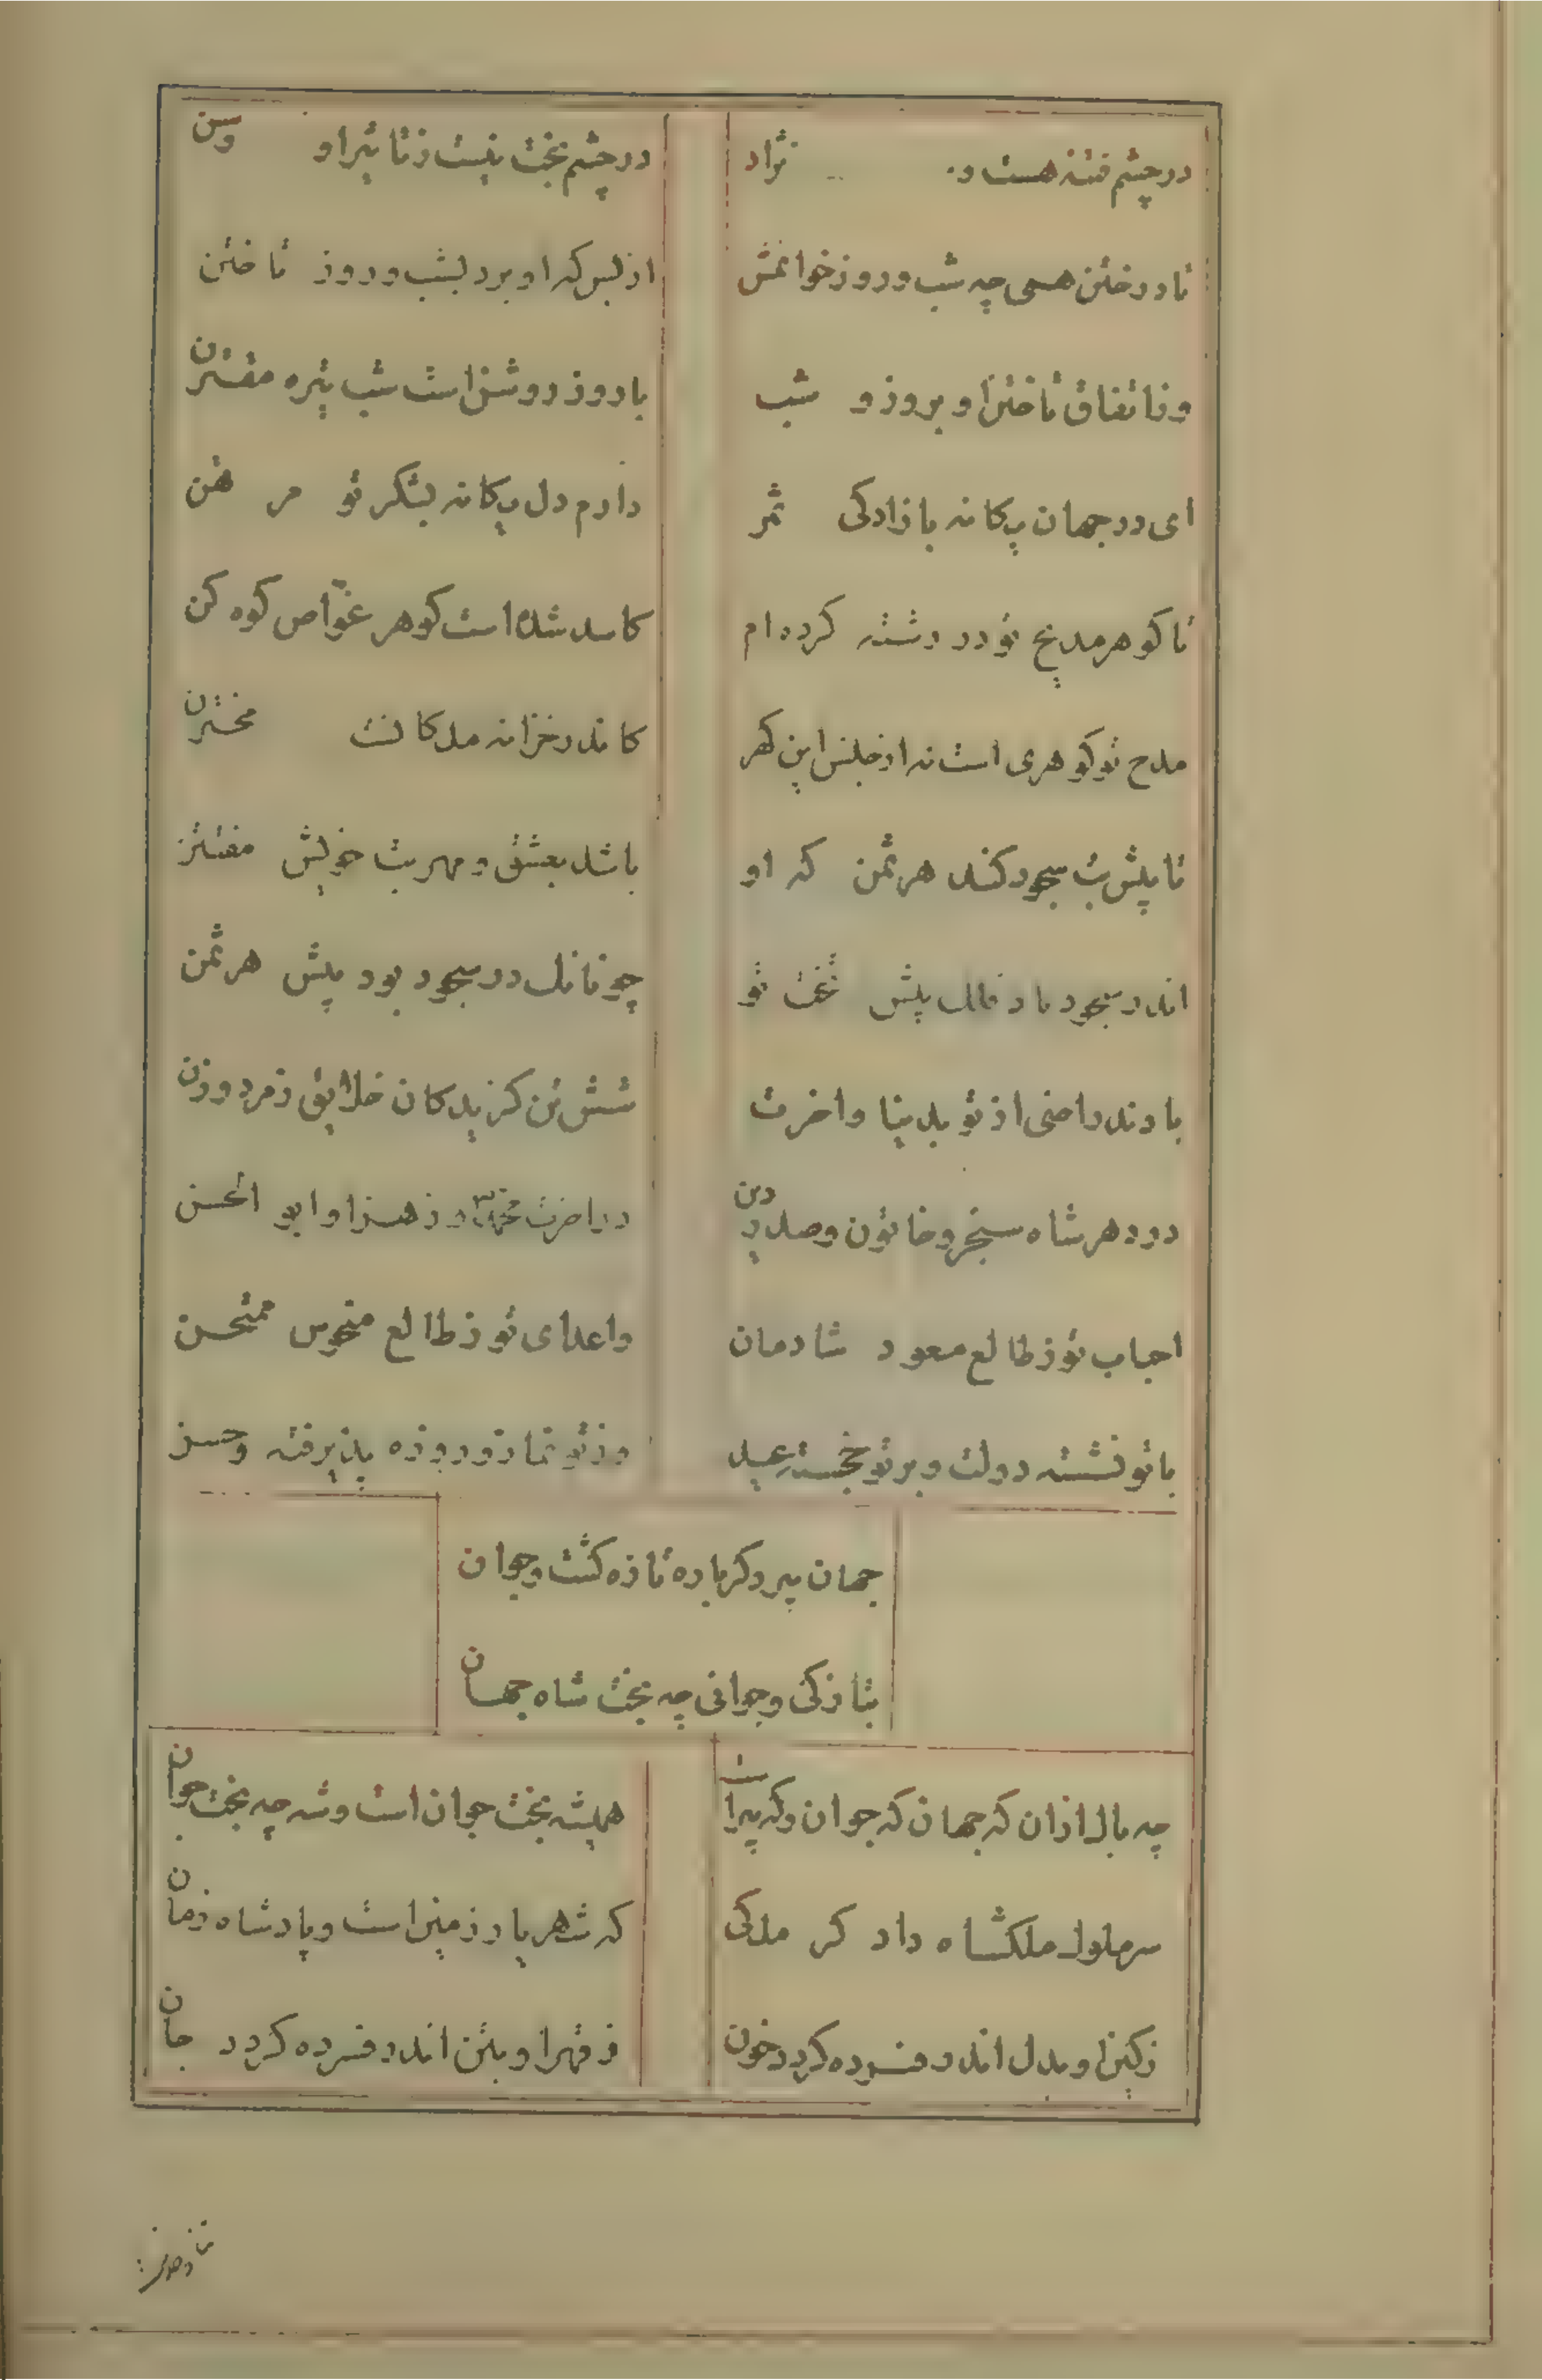 در چشم فتنه هست و نژاد
در چشم بخت نیست ز تاثیر او وسن
تا در ختن همی چه شب و روز خوانمش
از بس که او برد بشب و روز تاختن
وز اتفاق تاختن او بروز و شب
با روز روشن است شب تیره مقترن
ای در جهان یکانه بازادکی ثمر
دارم دل یکانه بشکر تو مرتهن
تا کوهر مدیح تو در رشته کرده ام
کاسد شده است کوهر غوّاص کوه کن
مدح تو کوهری است نه از جنس این کهر
کاندر خزانه ملکانت مختزن
تا پیش بت سجود کند هر ثمن که او
باشد بعشق و مهر بت خویش مفتتن
اندر سجود باد فلک پیش تخت تو
چونانک در سجود بود پیش هر ثمن
بادند راضی از تو بدینا و اخرت
شش تن کزیدکان خلایق ز مرد و زن
در دهر شاه سنجر و خاتون و صدر دین
در اخرت محمد و زهرا و ابو الحسن
احباب تو ز طالع مسعود شادمان
واعدای تو ز طالع منحوس ممتحن
با تو نشسته دولت و بر تو خجسته عید
وز تو نماز و روزه پذیرفته وحسن
جهان پیر دکر باره تازه کشت و جوان
بتازکی و جوانی چه بخت شاه جهان
چه باک ازان که جهان که جوان و که پیر است
همیشه بخت جوان است و شه چه بخت جوان
سر ملوک ملکشاه دادکر ملکی
که شهریار زمین است و پادشاه زمان
ز کین او بدل اندر فسرده کردد خون
ز قهر او بتن اندر فسرده کردد جان